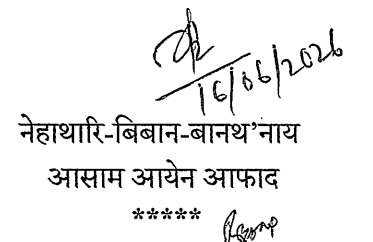 16/06/2026
नेहाथारि-बिबान-बानथ’नाय
आसाम आयेन आफाद
*****